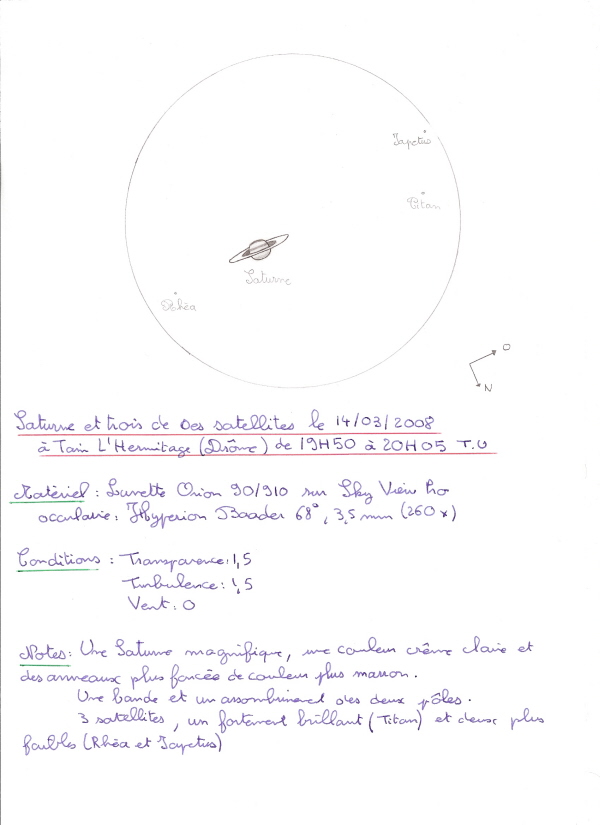 Japetus
Titan
Saturne
Rhéa
O
N
Saturne et trois de ses satellites le 14/03/2008
à Tain L'Hermitage (Drôme) de 19H50 à 20H05 T.U
Matériel : Lunette Orion 90/910 sur Sky View Pro
occulaire : Hyperion Baader 68°, 3,5 mm (260x)
Conditions : Transparence : 1,5
Turbulence : 1,5
Vent : 0
Notes : Une Saturne magnifique, une couleur crème claire et
des anneaux plus foncée de couleur plus marron.
Une bande et un assombrissement des deux pôles.
3 satellites, un fortement brillant (Titan) et deux plus
faibles (Rhéa et Japetus)